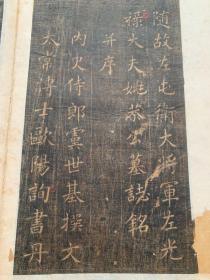 随故左屯衛大將軍左光
祿大夫姚恭公墓誌銘
并序
內史侍郎虞世基撰文
太常博士歐陽詢書丹